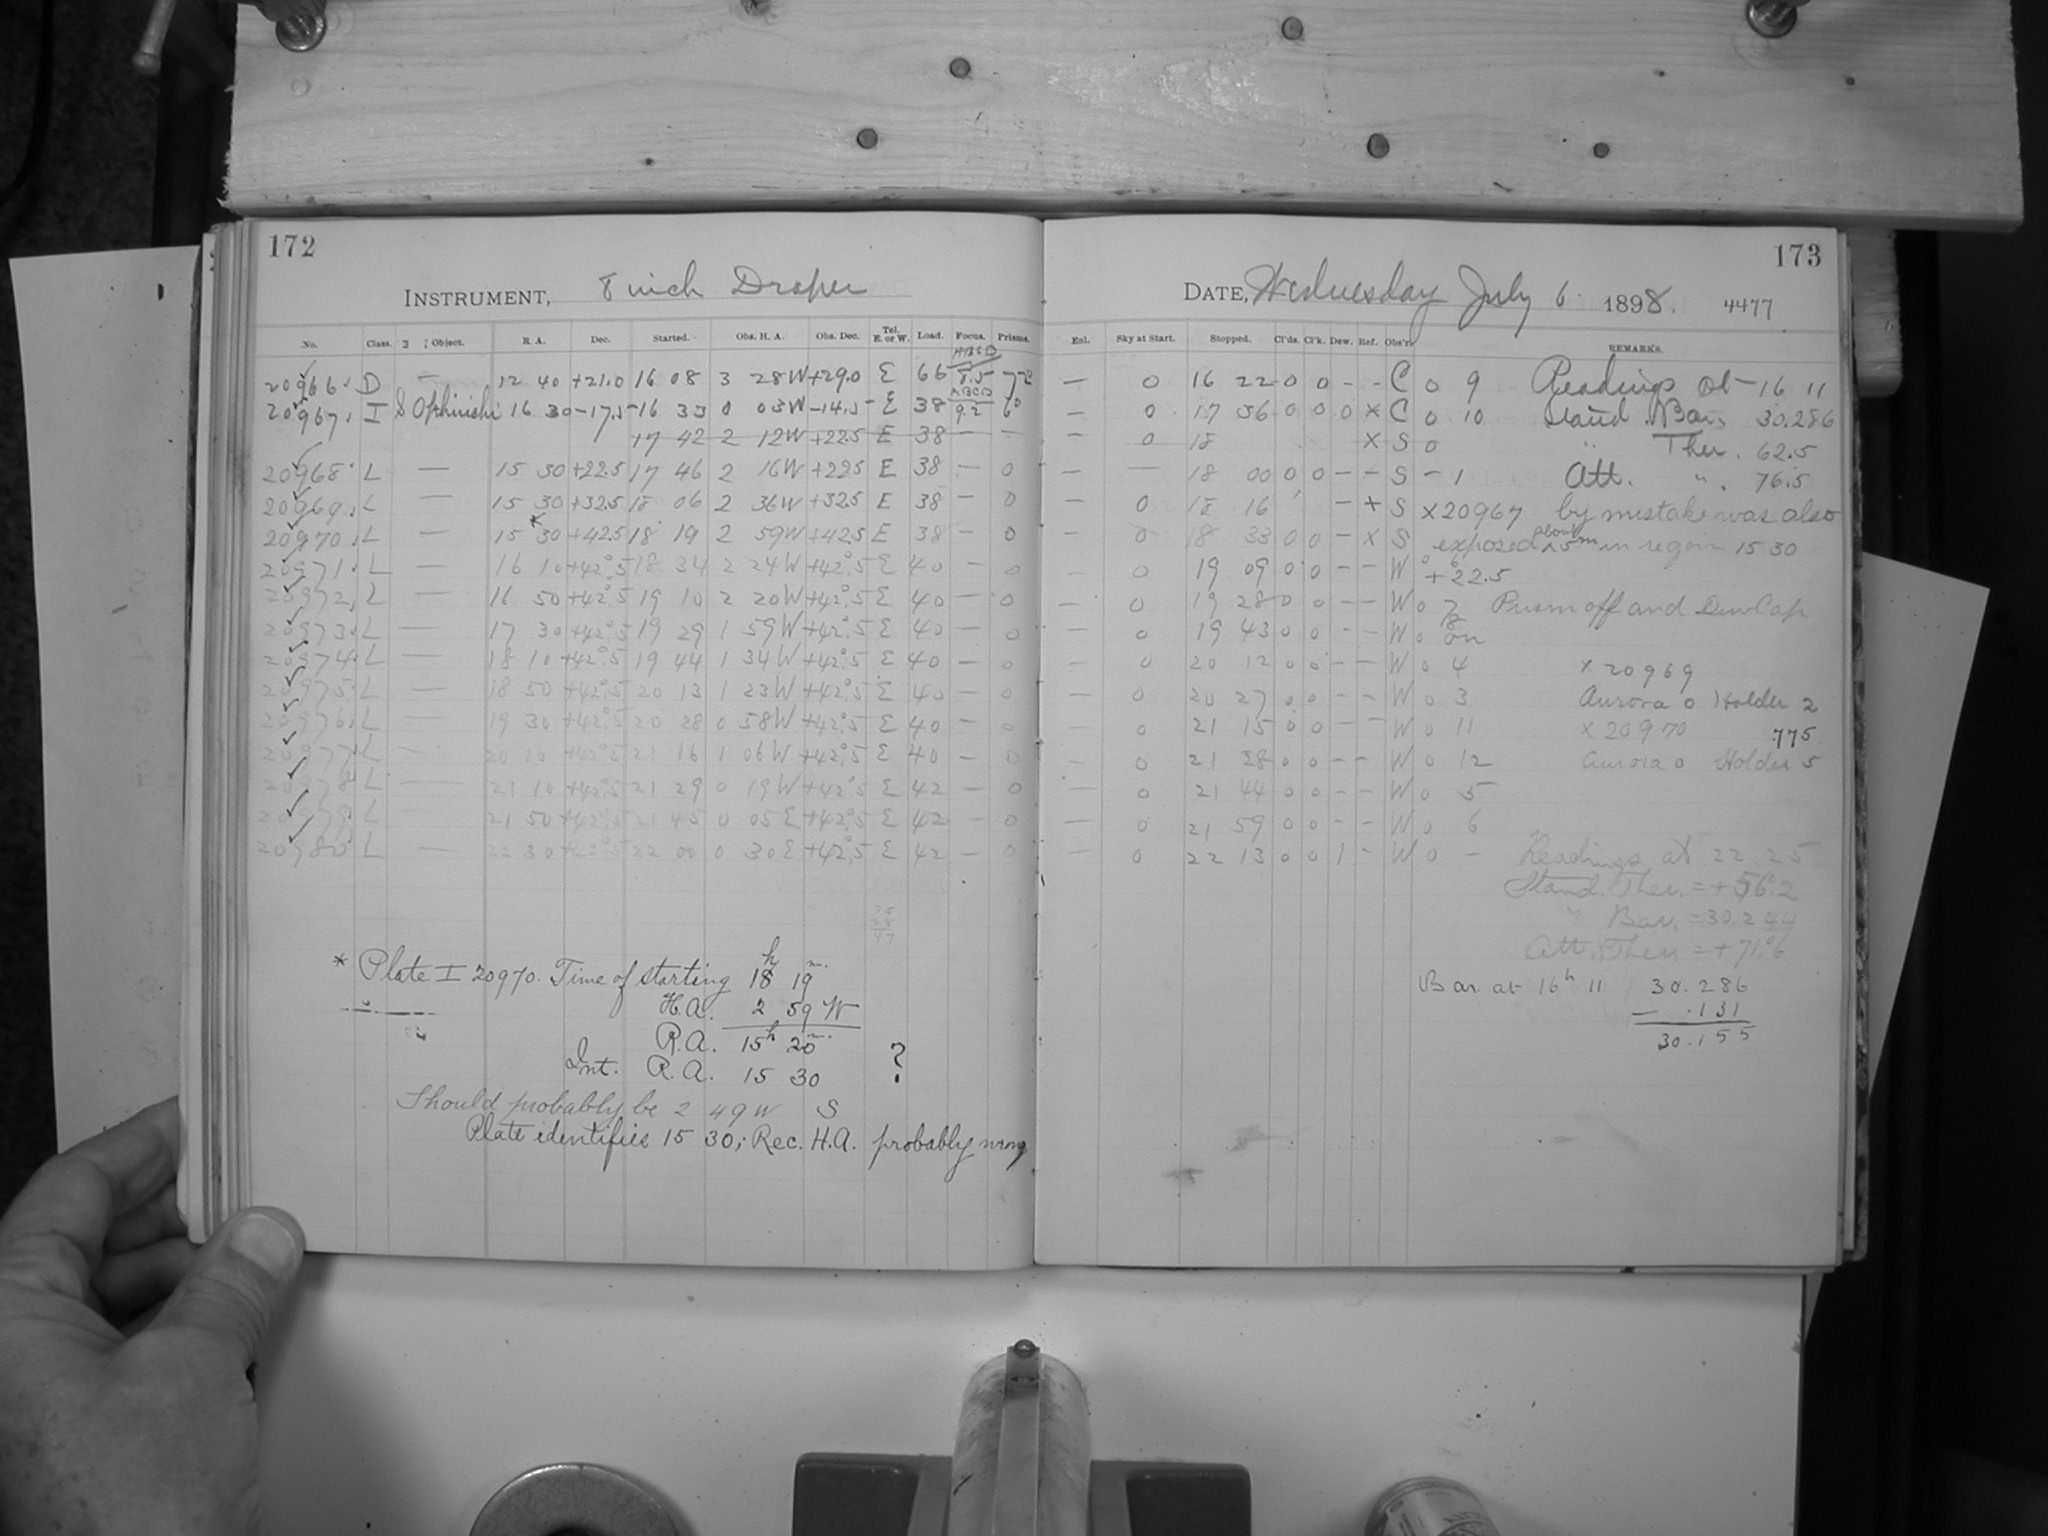 172
INSTRUMENT, 8 inch Draper
No. Class. Object. R. A. Dec. Started. Obs. H. A. Obs. Dec. Tel. E. or W. Load. Focus. Prisms.
20966 D — 12 40 +21.0 16 08 3 28W +29.0 E 66 ABCD 8.5
20967 I S Ophiuchi 16 30 -17.5 16 33 0 03W -14.5 E 38 ABCD 9.2
17 42 2 12W +22.5 E 38 — —
20968 L — 15 30 +22.5 17 46 2 16W +22.5 E 38 — 0
20969 L — 15 30 +32.5 18 06 2 36W +32.5 E 38 — 0
20970 L — 15 30* +42.5 18 19 2 59W +42.5 E 38 — 0
20971 L — 16 10 +42°.5 18 34 2 24W +42°.5 E 40 — 0
20972 L — 16 50 +42°.5 19 10 2 20W +42°.5 E 40 — 0
20973 L — 17 30 +42°.5 19 29 1 59W +42°.5 E 40 — 0
20974 L — 18 10 +42°.5 19 44 1 34W +42°.5 E 40 — 0
20975 L — 18 50 +42°.5 20 13 1 23W +42°.5 E 40 — 0
20976 L — 19 30 +42°.5 20 28 0 58W +42°.5 E 40 — 0
20977 L — 20 10 +42°.5 21 16 1 06W +42°.5 E 40 — 0
20978 L — 21 10 +42°.5 21 29 0 19W +42°.5 E 42 — 0
20979 L — 21 50 +42°.5 21 45 0 05E +42°.5 E 42 — 0
20980 L — 22 30 +42°.5 22 00 0 30E +42°.5 E 42 — 0
* Plate I 20970. Time of starting 18h 19m.
H.A. 2 59 W
R.A. 15h 20m.
Int. R.A. 15 30 ?
Should probably be 2 49W S
Plate identifies 15 30; Rec. H.A. probably wrong
173
DATE, Wednesday July 6 1898. 4477
Enl. Sky at Start. Stopped. Cl'ds. Cl'k. Dew. Ref. Obs'r. REMARKS.
— 0 16 22 0 0 - - C 0 9 Readings at 16 11
— 0 17 36 0 0 0 × C 0 10 Stand. Bar. 30.286
— 0 18 × S 0 " Ther. 62.5
— — 18 00 0 0 - - S - 1 Att. " 76.5
— 0 18 16 - × S ×20967 by mistake was also
— 0 18 33 0 0 - × S exposed about 5m in region 15 30
— 0 19 09 0 0 - - W +22.5
— 0 19 28 0 0 - - W 0 7 Prism off and Dew Cap
— 0 19 43 0 0 - - W 0 8 on
— 0 20 12 0 0 - - W 0 4 × 20969
— 0 20 27 0 0 - - W 0 3 Aurora 0 Holder 2
— 0 21 15 0 0 - - W 0 11 × 20970 775
— 0 21 28 0 0 - - W 0 12 Aurora 0 Holder 5
— 0 21 44 0 0 - - W 0 5
— 0 21 59 0 0 - - W 0 6
— 0 22 13 0 0 1 - W 0 - Readings at 22 25
Stand. Ther. = +56°.2
" Bar. = 30.244
Att. Ther. = +71°.6
Bar. at 16h 11 30.286
— .131
30.155